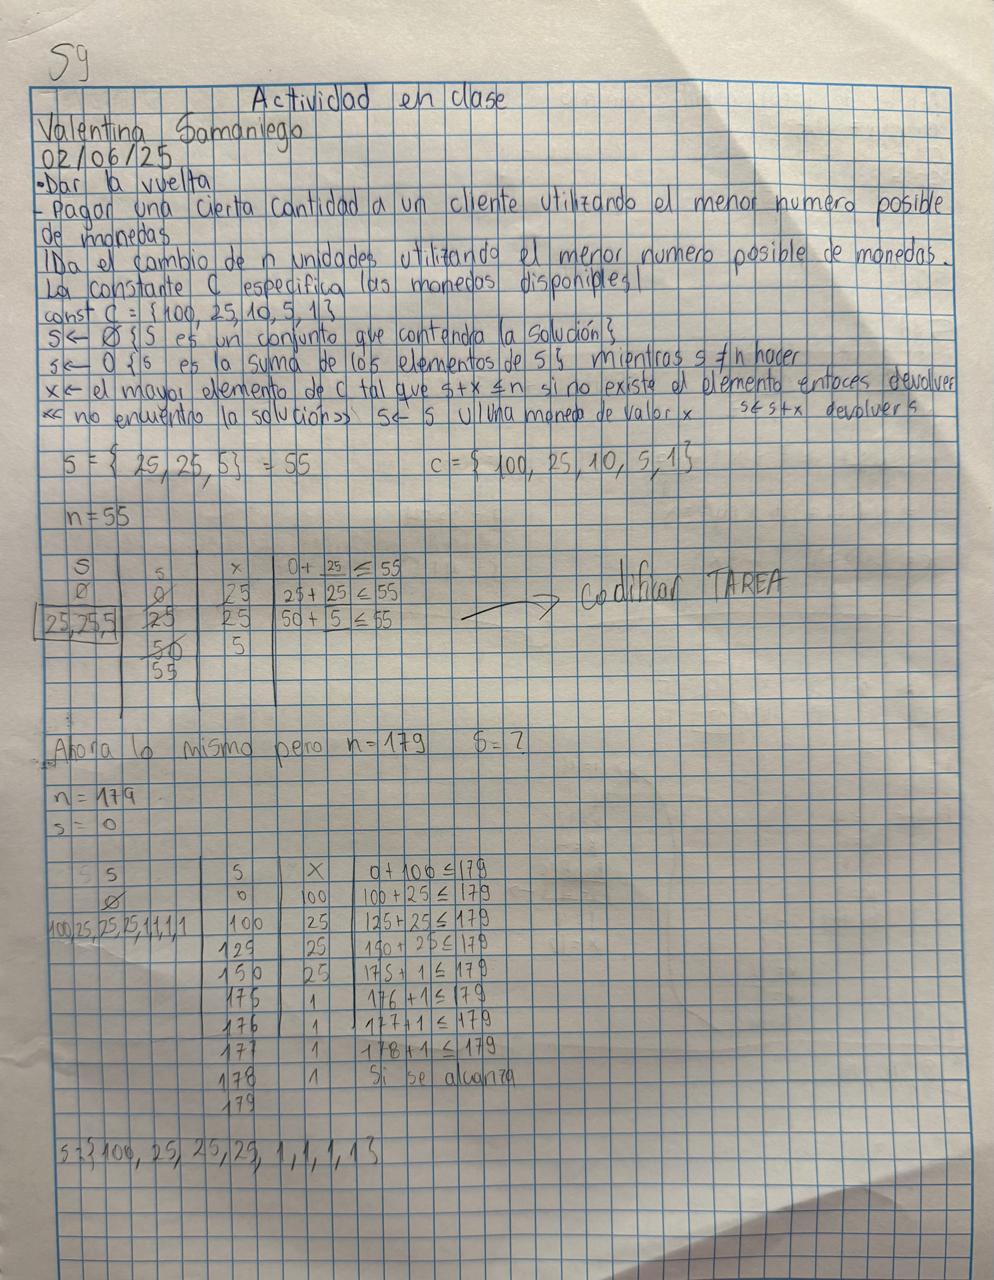 59
Actividad en clase
Valentina Samaniego
02/06/25
•Dar la vuelta
- Pagar una cierta cantidad a un cliente utilizando el menor numero posible
de monedas
|Da el cambio de n unidades utilizando el menor numero posible de monedas.
La constante C especifica las monedas disponibles|
const C = {100, 25, 10, 5, 1}
S← Ø {S es un conjunto que contendra la solución}
s← 0 {s es la suma de los elementos de S} mientras s ≠ n hacer
x← el mayor elemento de C tal que s+x ≤ n si no existe el elemento entoces devolver
<< no encuentro la solucion>> S← S U{Una moneda de valor x s← s+x devolver s
S = { 25, 25, 5} = 55 C = { 100, 25, 10, 5, 1}
n=55
S s x 0+ 25 ≤ 55
Ø 0 25 25+ 25 ≤ 55
25,25,5 25 25 50 + 5 ≤ 55
50 5
55
→ codificar TAREA
Ahora lo mismo pero n=179 S= ?
n = 179
s = 0
S s x 0+ 100 ≤ 179
Ø 0 100 100 + 25 ≤ 179
100,25,25,25,1,1,1,1 100 25 125+ 25 ≤ 179
125 25 150+ 25 ≤ 179
150 25 175+ 1 ≤ 179
175 1 176 +1 ≤ 179
176 1 177+1 ≤ 179
177 1 178+1 ≤ 179
178 1 Si se alcanza
179
S={100, 25, 25, 25, 1, 1, 1, 1}